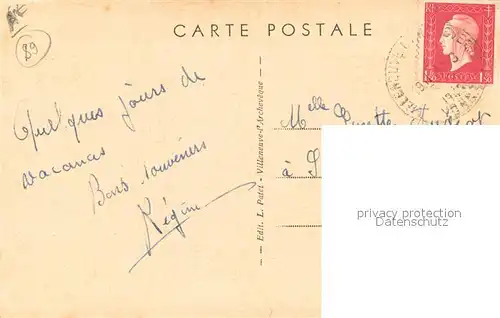 89
CARTE POSTALE
Quelques jours de
vacances
Bons souvenirs
Régine
Edit. L. Patet - Villeneuve-l'Archevêque
Melle
à
privacy protection
Datenschutz